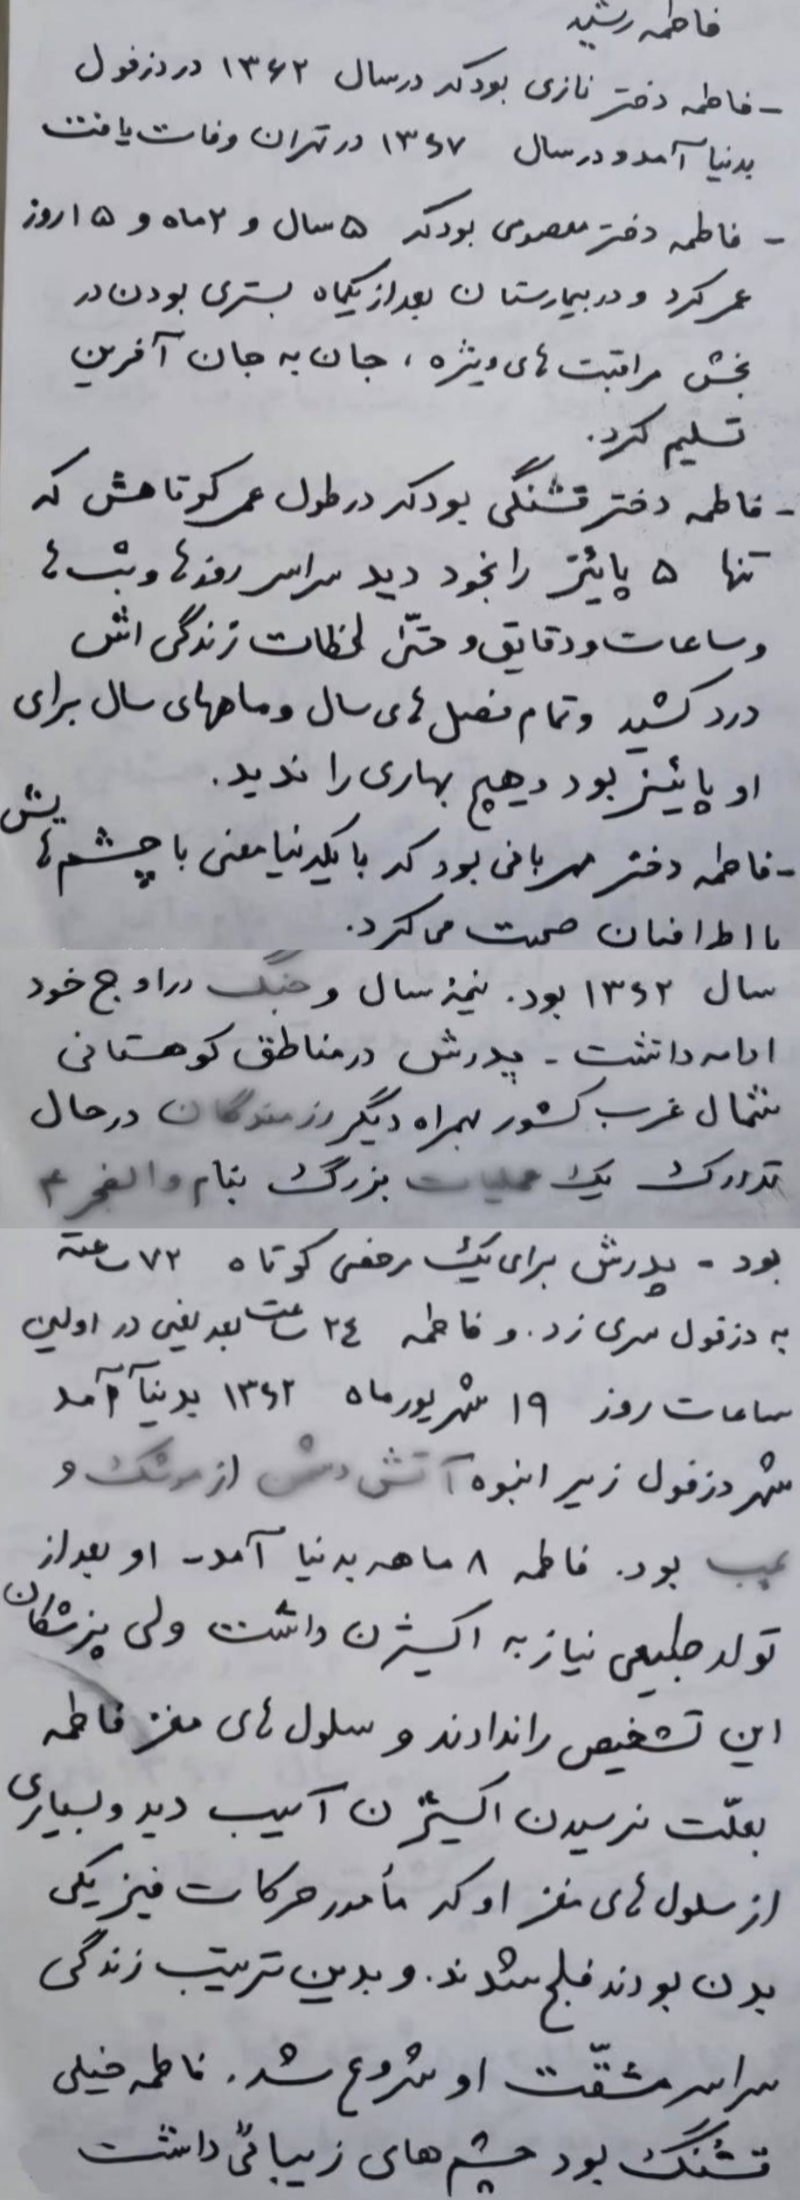 فاطمه رشید
- فاطمه دختر نازی بود که در سال ۱۳۶۲ در دزفول
بدنیا آمد و در سال ۱۳۶۷ در تهران وفات یافت
- فاطمه دختر معصومی بود که ۵ سال و ۲ ماه و ۱۵ روز
عمر کرد و در بیمارستان بعد از یکماه بستری بودن در
بخش مراقبت های ویژه ، جان به جان آفرین
تسلیم کرد.
- فاطمه دختر قشنگی بود که در طول عمر کوتاهش که
تنها ۵ پائیز را بخود دید سراسر روزها و شب ها
و ساعات و دقایق و حتّی لحظات زندگی اش
درد کشید و تمام فصل های سال و ماههای سال برای
او پائیز بود و هیچ بهاری را ندید.
- فاطمه دختر مهربانی بود که با یکدنیا معنی با چشم هایش
با اطرافیان صحبت می کرد.
سال ۱۳۶۲ بود. نیمهٔ سال و جنگ در اوج خود
ادامه داشت - پدرش در مناطق کوهستانی
شمال غرب کشور بهمراه دیگر رزمندگان در حال
تدارک یک عملیات بزرگ بنام والفجر ۴
بود - پدرش برای یک مرخصی کوتاه ۷۲ ساعته
به دزفول سری زد. و فاطمه ۲۴ ساعت بعد یعنی در اولین
ساعات روز ۱۹ شهریور ماه ۱۳۶۲ بدنیا آمد
شهر دزفول زیر انبوه آتش دشمن از موشک و
بمب بود. فاطمه ۸ ماهه بدنیا آمد - او بعد از
تولد طبیعی نیاز به اکسیژن داشت ولی پزشکان
این تشخیص را ندادند و سلول های مغز فاطمه
بعلّت نرسیدن اکسیژن آسیب دید و بسیاری
از سلول های مغز او که مأمور حرکات فیزیکی
بدن بودند فلج شدند. و بدین ترتیب زندگی
سراسر مشقّت او شروع شد. فاطمه خیلی
قشنگ بود چشم های زیبائی داشت